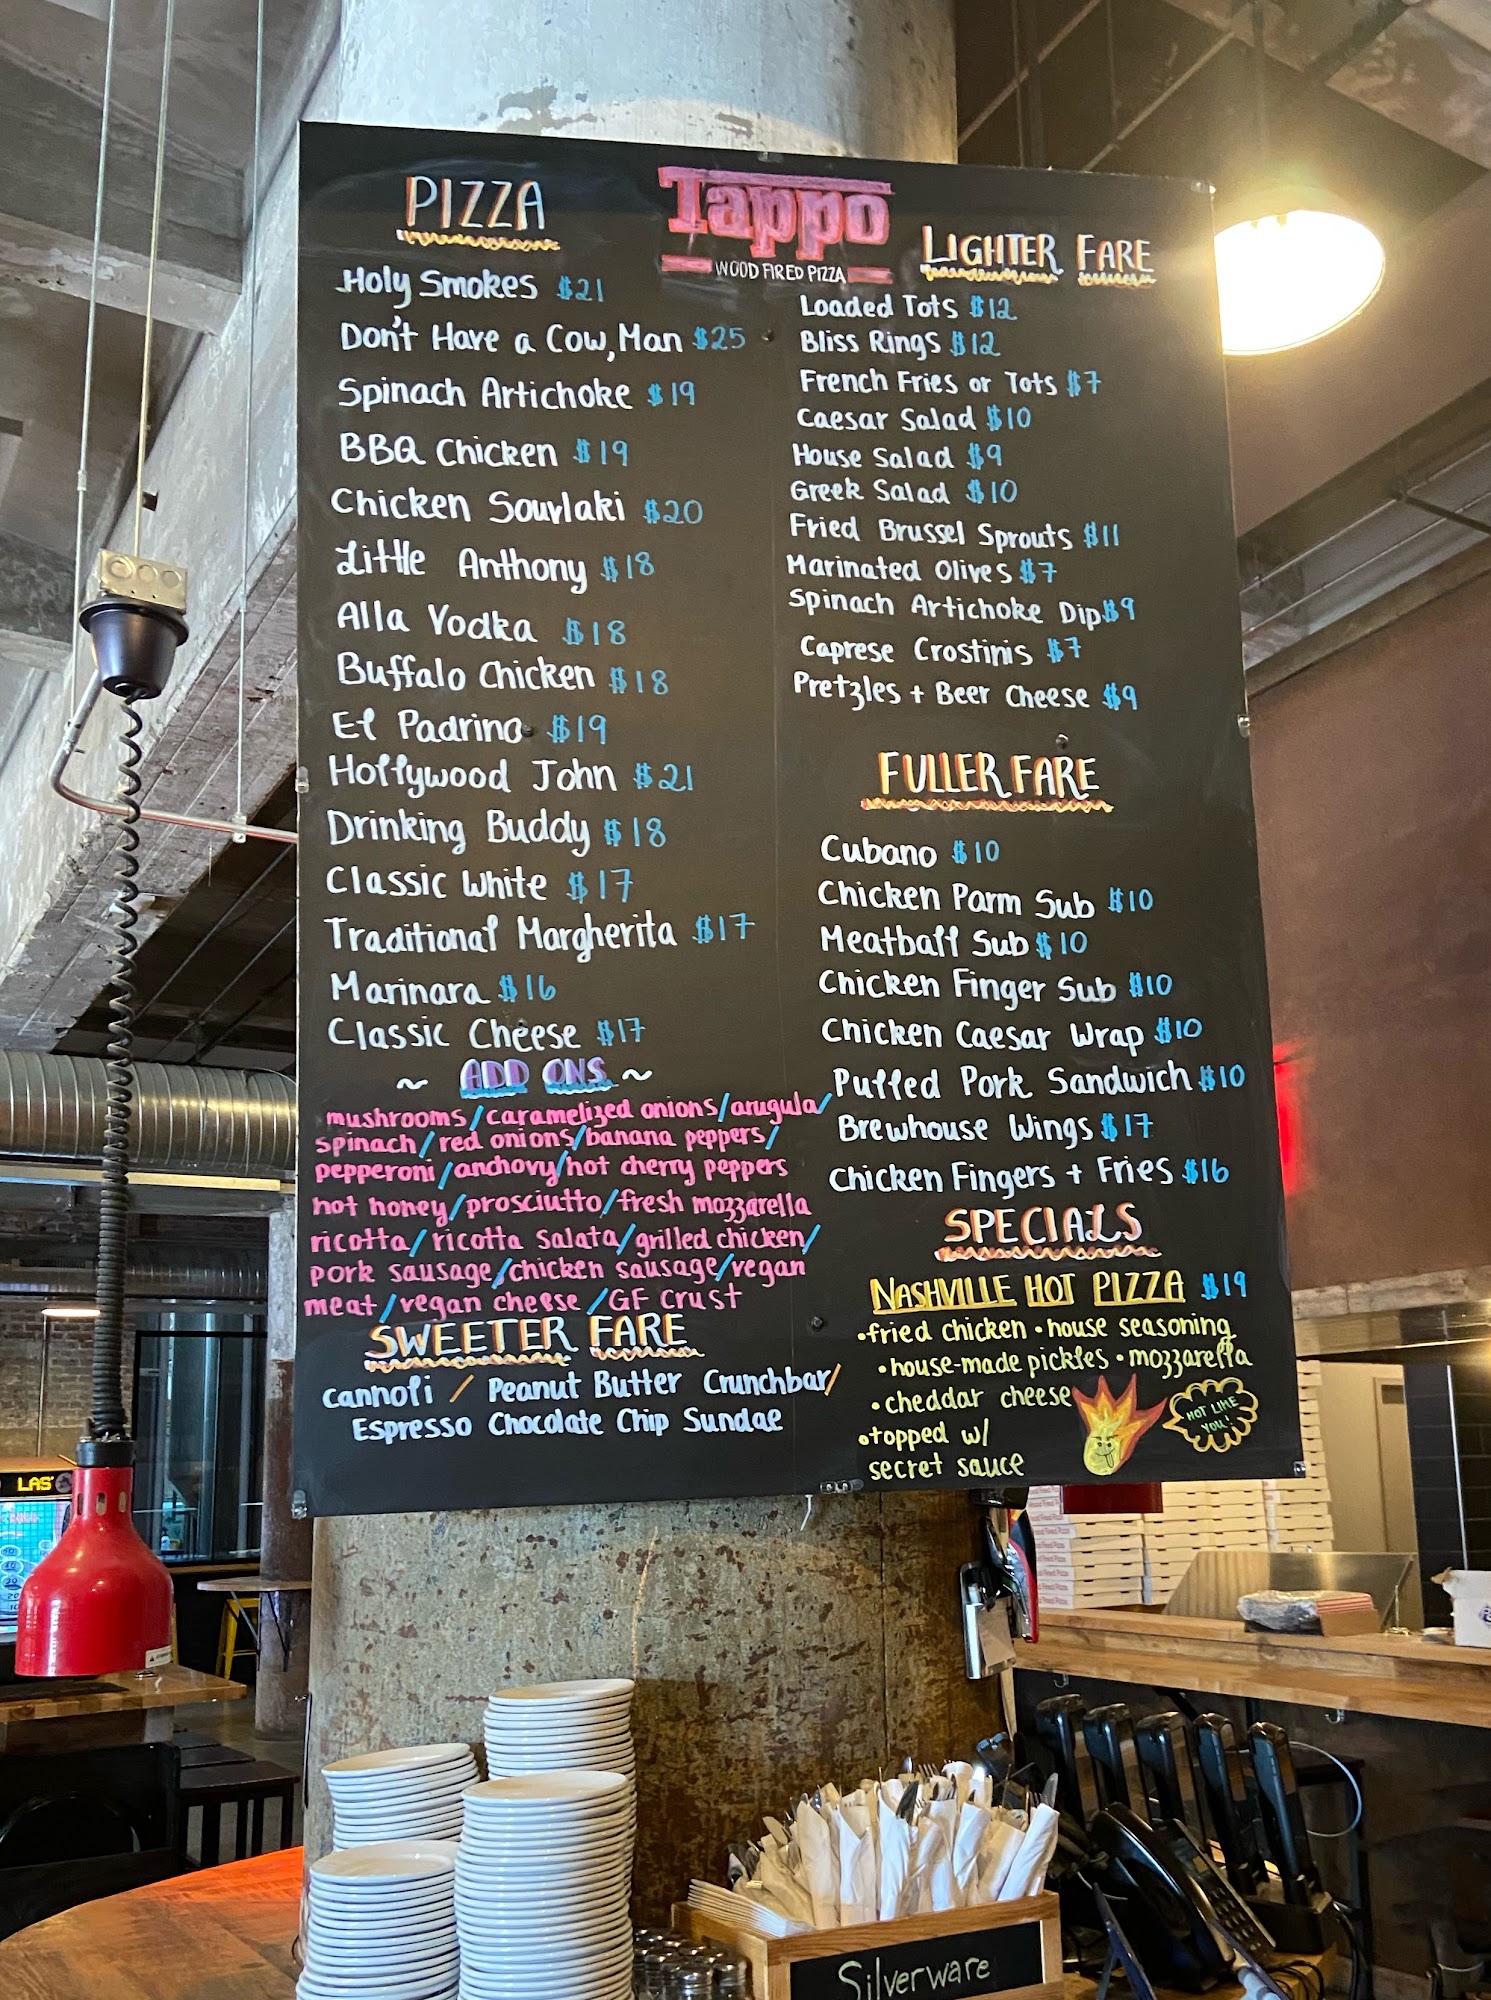 Tappo
WOOD FIRED PIZZA
PIZZA
Holy Smokes $21
Don't Have a Cow, Man $25
Spinach Artichoke $19
BBQ Chicken $19
Chicken Souvlaki $20
Little Anthony $18
Alla Vodka $18
Buffalo Chicken $18
El Padrino $19
Hollywood John $21
Drinking Buddy $18
Classic White $17
Traditional Margherita $17
Marinara $16
Classic Cheese $17
~ ADD ONS ~
mushrooms/caramelized onions/arugula/
spinach/red onions/banana peppers/
pepperoni/anchovy/hot cherry peppers
hot honey/prosciutto/fresh mozzarella
ricotta/ricotta salata/grilled chicken/
pork sausage/chicken sausage/vegan
meat/vegan cheese/GF crust
SWEETER FARE
cannoli / Peanut Butter Crunchbar/
Espresso Chocolate Chip Sundae
LIGHTER FARE
Loaded Tots $12
Bliss Rings $12
French Fries or Tots $7
Caesar Salad $10
House Salad $9
Greek Salad $10
Fried Brussel Sprouts $11
Marinated Olives $7
Spinach Artichoke Dip $9
Caprese Crostinis $7
Pretzles + Beer Cheese $9
FULLER FARE
Cubano $10
Chicken Parm Sub $10
Meatball Sub $10
Chicken Finger Sub $10
Chicken Caesar Wrap $10
Pulled Pork Sandwich $10
Brewhouse Wings $17
Chicken Fingers + Fries $16
SPECIALS
NASHVILLE HOT PIZZA $19
•fried chicken •house seasoning
•house-made pickles •mozzarella
•cheddar cheese
•topped w/
secret sauce
HOT LIKE
YOU!
LAS
Silverware